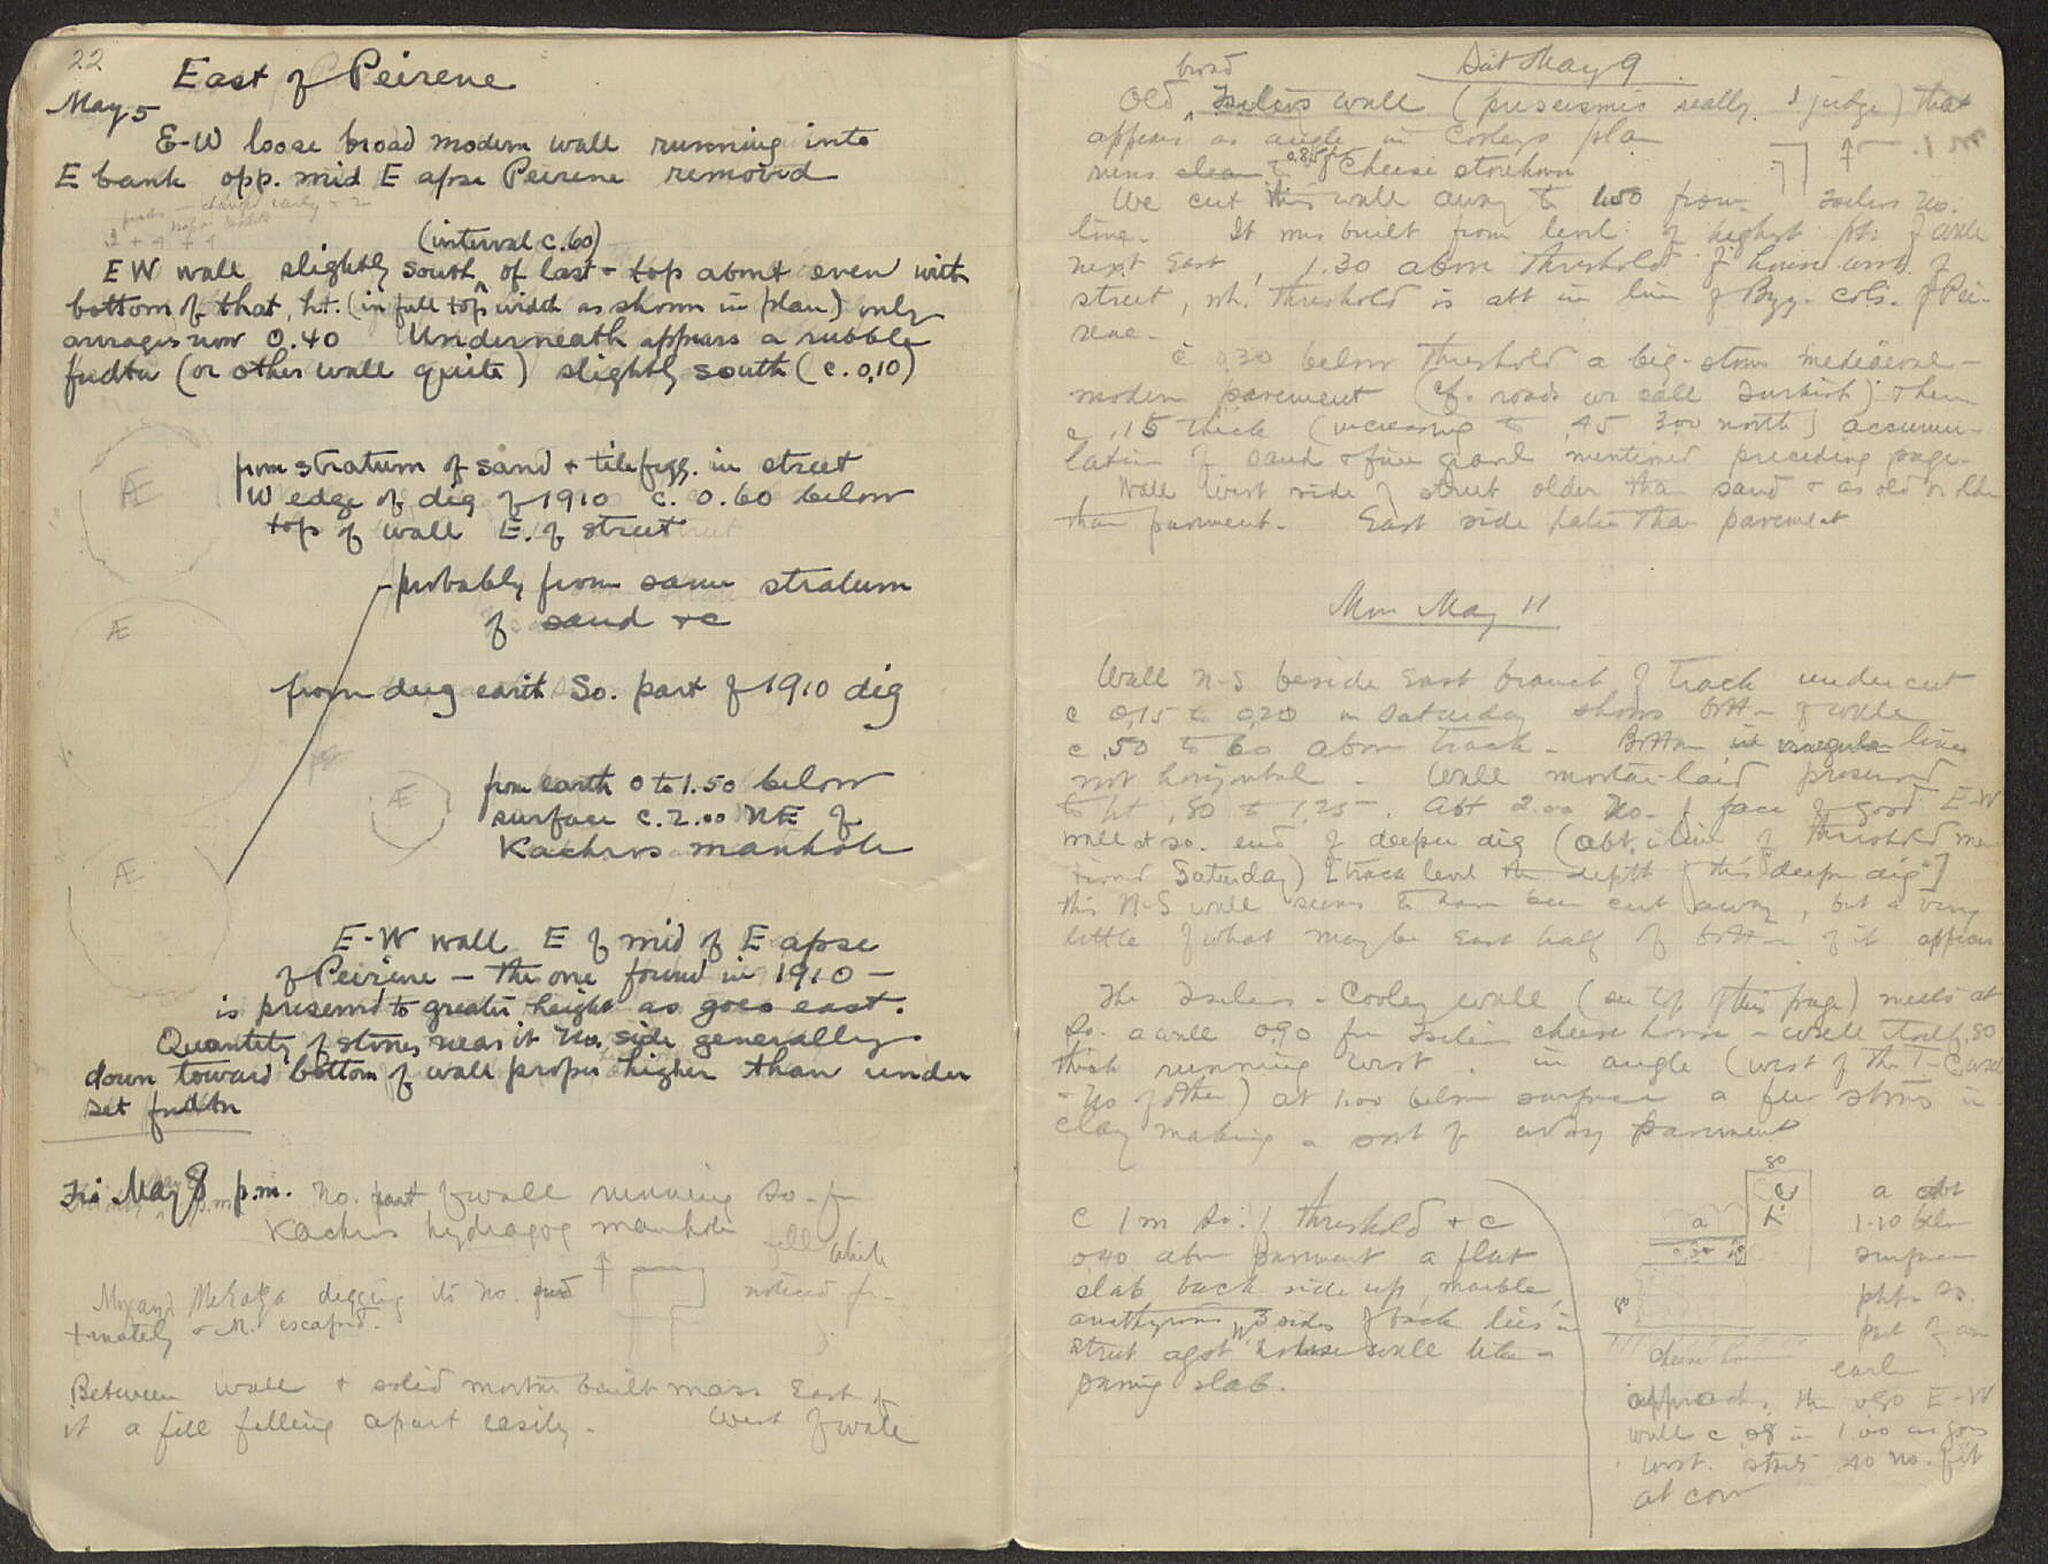 22
East of Peirene
May 5
E-W loose broad modern wall running into
E bank opp. mid E apse Peirene removed
2 + 4 + 4
(interval c. 60)
EW wall slightly south of last + top about even with
bottom of that, ht. (in full top width as shown in plan) only
averages now 0.40 Underneath appears a rubble
fndtn (or other wall quite) slightly south (c. 0,10)
Æ
from stratum of sand + tile fgg. in street
W edge of dig of 1910 c. 0.60 below
top of wall E. of street
Æ
probably from same stratum
of sand +c
from dug earth So. part of 1910 dig
Æ
from earth 0 to 1.50 below
surface c. 2.00 NE of
Kachros manhole
Æ
E-W wall E of mid of E apse
of Peirene — the one found in 1910 —
is preserved to greater height as goes east.
Quantity of stones near it No. side generally
down toward bottom of wall proper higher than under
set fndtn
Fri May 8 p.m. No. part of wall running So. fr
Kachros hydragog manhole
fell while
digging its No. end noticed for-
tunately + M. escaped.
Between wall + solid mortar built mass East of
it a fill falling apart easily. West of wall
Sat May 9
broad
Old Tselios wall (preseismic really I judge) that
appears as angle in Cooleys plan
runs clean to 0.85 of Cheese storehouse
We cut this wall away to 1.50 from Tselios No.
line. It was built from level of highest pt. of
next East, 1.30 above threshold of house west of
street, wh. threshold is abt in line of Byz. cols. of Pei-
rene.
c 0,30 below threshold a big-stone mediaeval-
modern pavement (cf. roads we call Turkish) then
c .15 thick (increasing to .45 3.00 north) accumu-
lation of sand + fine gravel mentioned preceding page.
Wall west side of street older than sand + as old or older
than pavement. East side later than pavement
Mon May 11
Wall N-S beside East branch of track undercut
c 0,15 to 0,20 on Saturday shows bottom of wall
c .50 to 60 above track. Bottom in irregular lines
not horizontal. Wall mortar-laid preserved
to ht .80 to 1.25. Abt 2.00 No. of face of good E-W
wall at so. end of deeper dig (abt. in line of threshold men-
tioned Saturday) [track level the depth of this "deeper dig"]
this N-S wall seems to have been cut away, but a very
little of what may be East half of bottom of it appears
The Tselios-Cooley wall (see top of this page) meets at
So. a wall 0.90 fr. Tselios cheese house — wall itself .80
thick running west. in angle (west of the T-C wall
- No of other) at 1.00 below surface a few stones in
clay making a sort of pavement
c 1 m So. of threshold + c
0.40 above pavement a flat
slab back side up, marble,
anathyrosis 3 sides of back lies in
street agst house wall like
paving slab.
80
a
a abt
1.10 below
surface
80
cheese house
earlier
approach. the 0.80 E-W
wall c .08 in 1.00 as goes
west.
at corner